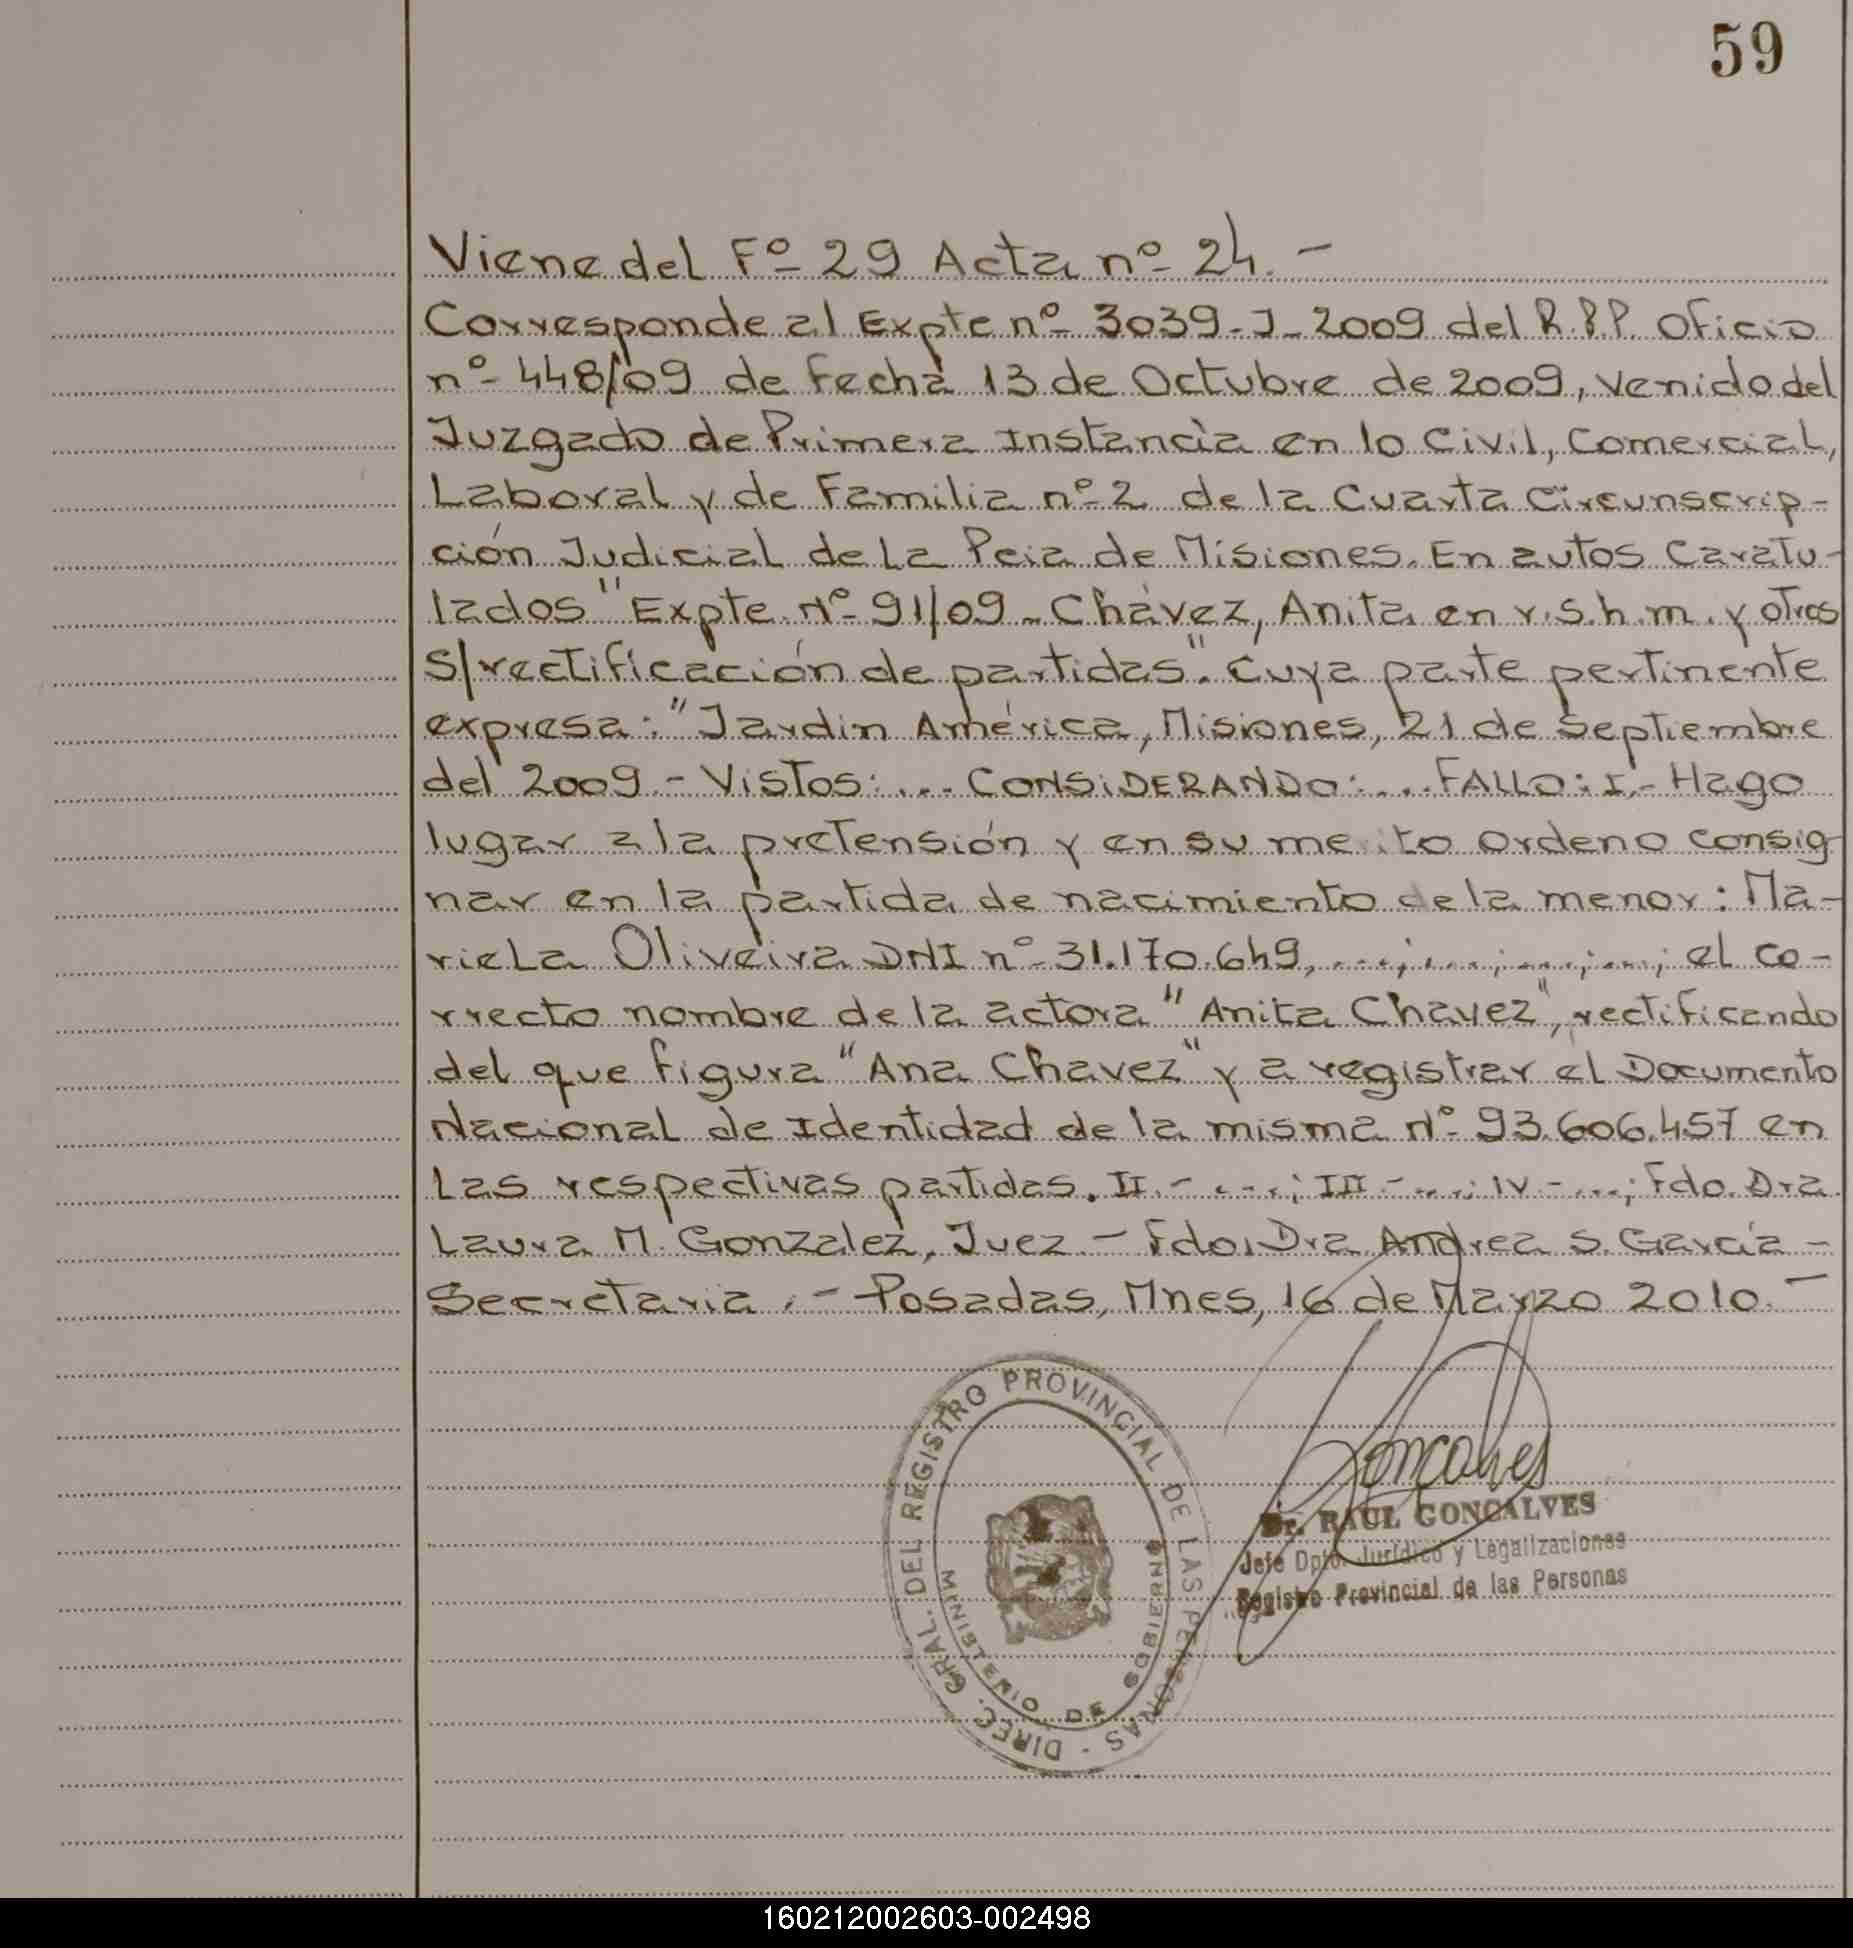 59
Viene del Fº 29 Acta nº 24.-
Corresponde al Expte nº 3039-J-2009 del R.P.P. Oficio
nº 448/09 de fecha 13 de Octubre de 2009, venido del
Juzgado de Primera Instancia en lo Civil, Comercial,
Laboral y de Familia nº 2 de la Cuarta Circunscrip-
ción Judicial de La Pcia de Misiones. En autos Caratu-
lados "Expte. Nº 91/09 - Chávez, Anita en r.s.h.m. y otros
S/rectificación de partidas". Cuya parte pertinente
expresa: "Jardin América, Misiones, 21 de Septiembre
del 2009.- VISTOS:... CONSIDERANDO:... FALLO: I.- Hago
lugar a la pretensión y en su merito Ordeno consig-
nar en la partida de nacimiento de la menor: Ma-
riela Oliveira DNI nº 31.170.649, ....;....;....;....; el co-
rrecto nombre de la actora "Anita Chavez", rectificando
del que figura "Ana Chavez" y a registrar el Documento
Nacional de Identidad de la misma Nº 93.606.457 en
Las respectivas partidas. II.- ....; III - ....; IV - ....; Fdo. Dra.
Laura M. Gonzalez, Juez - Fdo. Dra Andrea S. García -
Secretaria.- Posadas, Mnes, 16 de Marzo 2010.-
DIREC. GRAL. DEL REGISTRO PROVINCIAL DE LAS PERSONAS -
MINISTERIO DE GOBIERNO
Goncalves
Dr. RAUL GONCALVES
Jefe Dpto. Jurídico y Legalizaciones
Registro Provincial de las Personas
160212002603-002498